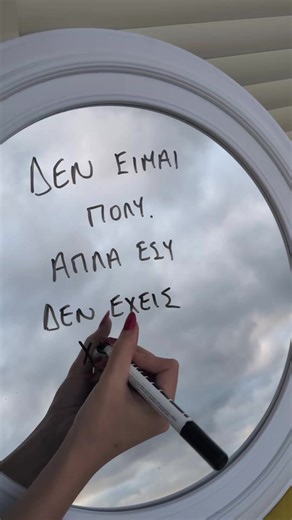 ΔΕΝ ΕΙΜΑΙ
ΠΟΛΥ.
ΑΠΛΑ ΕΣΥ
ΔΕΝ ΕΧΕΙΣ